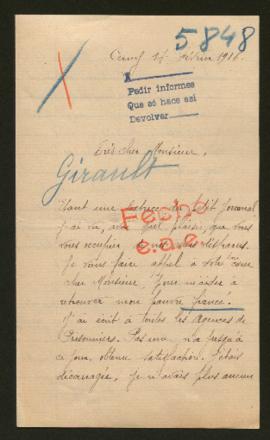 5848
14 Février 1916.
Pedir informes
Que se hace asi
Devolver
Très cher Monsieur,
Girault
une du Petit Journal
Fecho
j'ai vu, avec quel plaisir, que vous
vous occupiez
e.a.e.
Je viens faire appel à votre
cher Monsieur. Pour m'aider à
retrouver mon pauvre fiancé.
J'ai écrit à toutes les Agences de
Prisonniers. Pas une n'a jusqu'à
ce jour, obtenu satisfaction. J'étais
découragée, je n'avais plus aucun